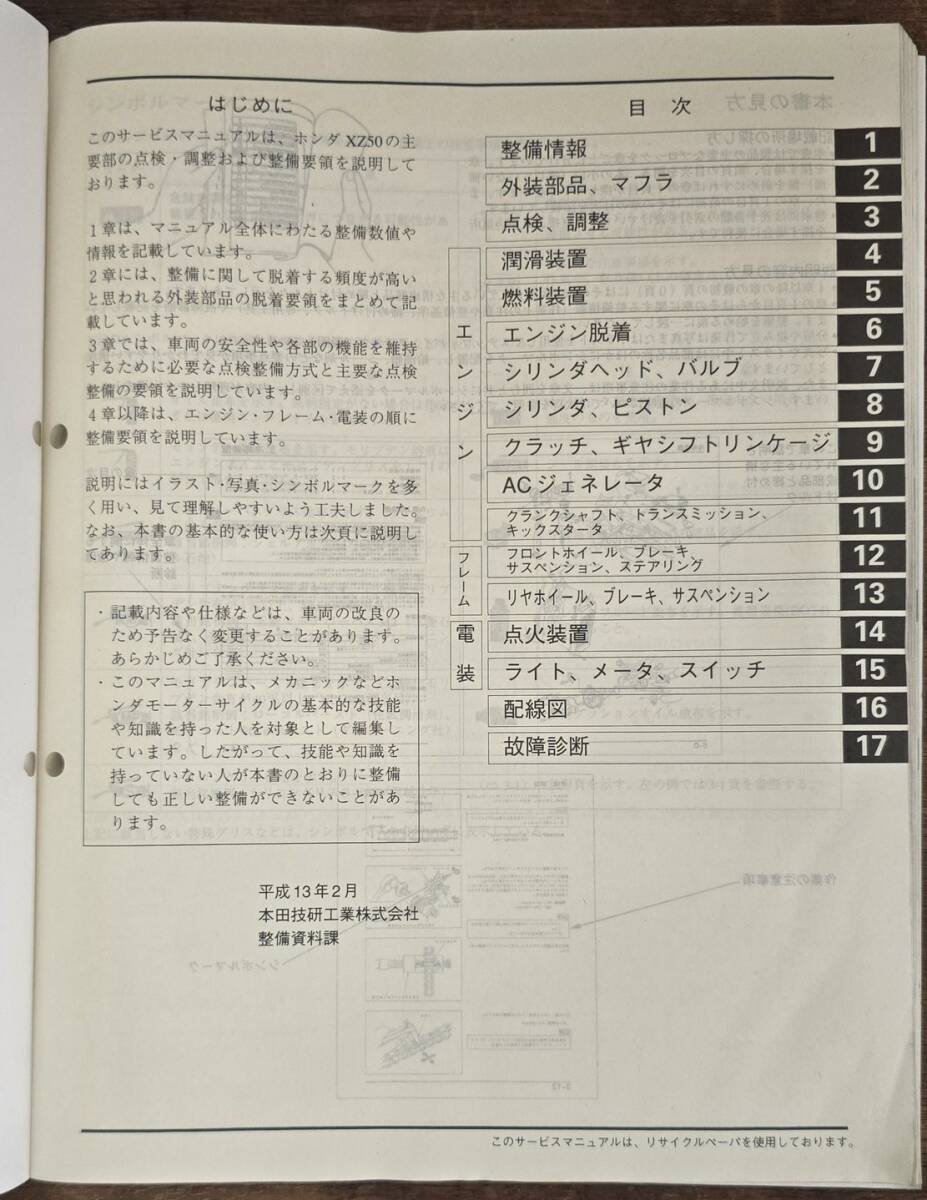 はじめに
このサービスマニュアルは、ホンダ XZ50の主
要部の点検・調整および整備要領を説明して
おります。
1章は、マニュアル全体にわたる整備数値や
情報を記載しています。
2章には、整備に関して脱着する頻度が高い
と思われる外装部品の脱着要領をまとめて記
載しています。
3章では、車両の安全性や各部の機能を維持
するために必要な点検整備方式と主要な点検
整備の要領を説明しています。
4章以降は、エンジン・フレーム・電装の順に
整備要領を説明しています。
説明にはイラスト・写真・シンボルマークを多
く用い、見て理解しやすいよう工夫しました。
なお、本書の基本的な使い方は次頁に説明し
てあります。
・記載内容や仕様などは、車両の改良の
ため予告なく変更することがあります。
あらかじめご了承ください。
・このマニュアルは、メカニックなどホ
ンダモーターサイクルの基本的な技能
や知識を持った人を対象として編集し
ています。したがって、技能や知識を
持っていない人が本書のとおりに整備
しても正しい整備ができないことがあ
ります。
平成13年2月
本田技研工業株式会社
整備資料課
目 次
整備情報 1
外装部品、マフラ 2
点検、調整 3
エンジン
潤滑装置 4
燃料装置 5
エンジン脱着 6
シリンダヘッド、バルブ 7
シリンダ、ピストン 8
クラッチ、ギヤシフトリンケージ 9
ACジェネレータ 10
クランクシャフト、トランスミッション、
キックスタータ 11
フレーム
フロントホイール、ブレーキ、
サスペンション、ステアリング 12
リヤホイール、ブレーキ、サスペンション 13
電装
点火装置 14
ライト、メータ、スイッチ 15
配線図 16
故障診断 17
このサービスマニュアルは、リサイクルペーパを使用しております。